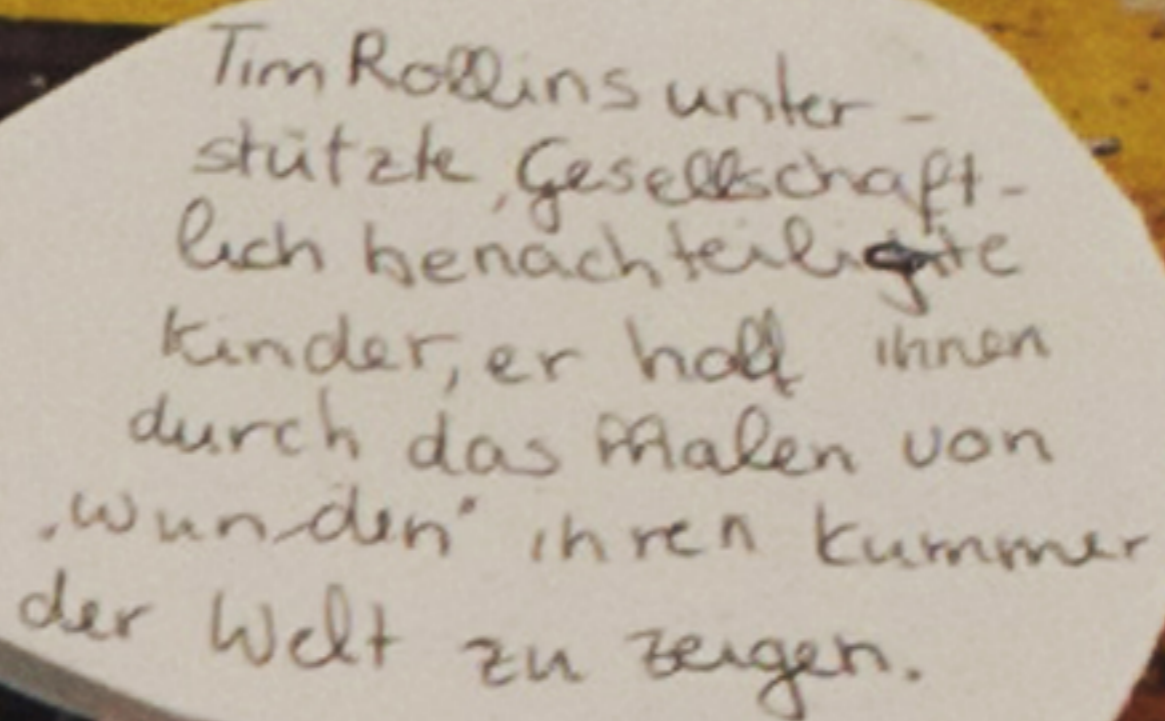 Tim Rollins unter-
stützte, Gesellschaft-
lich benachteiligte
Kinder, er half ihnen
durch das Malen von
"Wunden" ihren Kummer
der Welt zu zeigen.